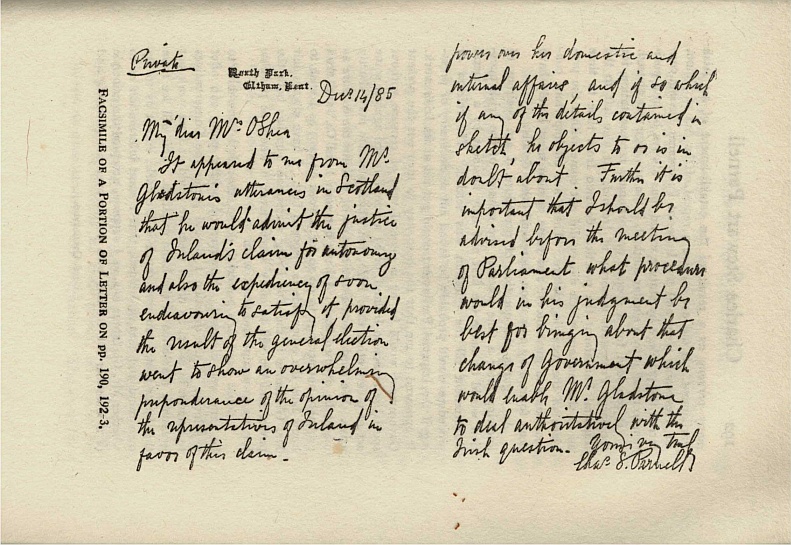 FACSIMILE OF A PORTION OF LETTER ON pp. 190, 192-3.
Private
North Park.
Eltham, Kent.
Decr. 14/85
My dear Mrs O'Shea
It appeared to me from Mr.
Gladstone's utterances in Scotland
that he would admit the justice
of Ireland's claim for autonomy
and also the expediency of soon
endeavouring to satisfy it provided
the result of the general election
went to show an overwhelming
preponderance of the opinion of
the representatives of Ireland in
favor of this claim.
powers over her domestic and
internal affairs, and if so which
if any of the details contained in
sketch, he objects to or is in
doubt about. Further it is
important that I should be
advised before the meeting
of Parliament what procedure
would in his judgment be
best for bringing about that
change of Government which
would enable Mr. Gladstone
to deal authoritatively with the
Irish question. Yours very truly
Chas. S. Parnell